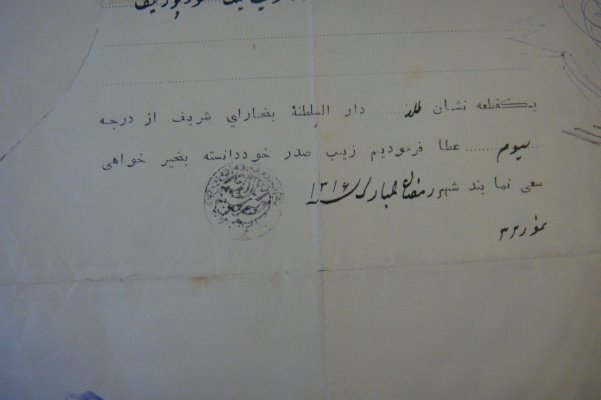 یکقطعه نشان طلا دار السلطنهٔ بخارای شریف از درجه
سیوم عطا فرمودیم زیب صدر خود دانسته بخیر خواهی
سعی نمایند شهر رمضان المبارک ۱۳۱۶
نمور ۳۲